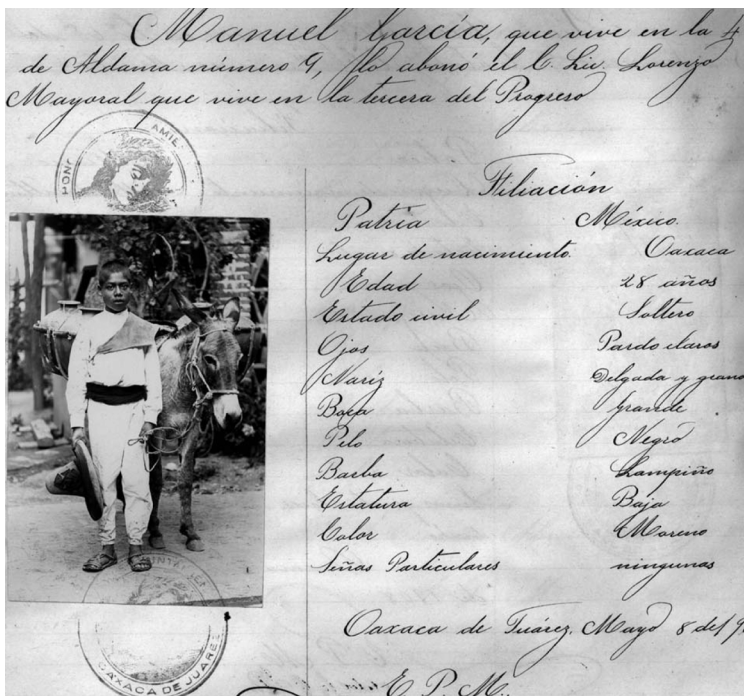 Manuel García, que vive en la 4
de Aldama número 9, lo abonó el C. Lic. Lorenzo
Mayoral que vive en la tercera del Progreso
Filiación
Patria México.
Lugar de nacimiento. Oaxaca
Edad 28 años
Estado civil Soltero
Ojos Pardo claros
Nariz Delgada y grand
Boca grande
Pelo Negro
Barba Lampiño
Estatura Baja
Color Moreno
Señas Particulares ningunas
Oaxaca de Juárez, Mayo 8 del 9
E. P. M.
OAXACA DE JUAREZ